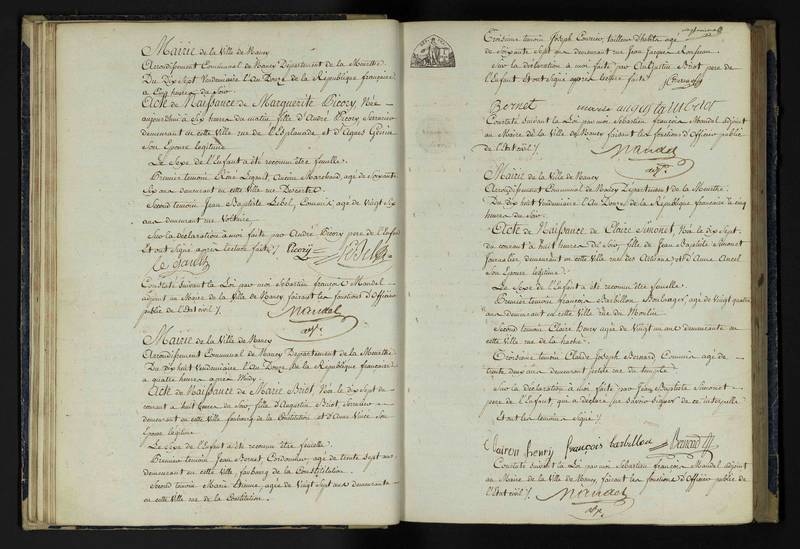 Mairie de la Ville de Nancy
Arrondissement Communal de Nancy Département de la Meurthe.
Du Dix Sept Vendemiaire l'An Douze de la République française
a Cinq heures du Soir.
Acte de Naissance de Marguerite Picory, Née
aujourd'hui à Six heures du matin fille d'André Picory Serrurier
demeurant en cette Ville rue de l'Esplanade et d'Agnès
Son Epouse legitime
Le Sexe de l'Enfant a été reconnu être femelle.
Premier temoin René Legault, ancien Marchand, agé de Soixante
Six ans demeurant en cette Ville rue
Second temoin, Jean Baptiste Lebel, Commis, agé de Vingt Six
ans demeurant rue Voltaire
Sur la déclaration à moi faite par André Picory pere de l'Enfant
Et ont Signé après lecture faite /. Picory Lebel
Le Gault
Constaté Suivant la Loi par moi Sébastien françois Mandel
adjoint au Maire de la Ville de Nancy faisant les fonctions d'Officier
public de l'Etat civil /.
Mandel
adj.
Mairie de la Ville de Nancy
Arrondissement Communal de Nancy Departement de la Meurthe
Du dix huit Vendemiaire l'An Douze de la République française
a quatre heures après Midy
Acte de Naissance de Marie Briot, Née le dix Sept du
courant a huit heures du Soir, fille d'Augustin Briot, Serrurier
demeurant en cette Ville faubourg de la Constitution, et d'Anne Son
Epouse legitime
Le Sexe de l'Enfant a été reconnu être femelle.
Premier temoin Jean Bernet, Cordonnier, agé de trente Sept ans
demeurant en cette Ville faubourg de la Constitution.
Second temoin Marie Etienne, agée de Vingt Sept ans demeurante
en cette Ville rue de la Constitution.
Troisieme temoin Joseph Courier, tailleur d'habits agé
de Soixante Sept ans demeurant rue Jean Jacques Rousseau
Sur la déclaration à moi faite par Augustin Briot pere de
l'Enfant Et ont Signé après lecture faite
Bernet augustin briot
Constaté Suivant la Loi par moi Sébastien françois Mandel adjoint
au Maire de la Ville de Nancy faisant les fonctions d'Officier public
de l'Etat civil /.
Mandel
adj.
Mairie de la Ville de Nancy
Arrondissement Communal de Nancy Département de la Meurthe.
Du dix huit Vendemiaire l'An Douze de la République française à cinq
heures du Soir.
Acte de Naissance de Claire Simonet, Née le dix Sept
du courant à huit heures du Soir, fille de Jean Baptiste Simonet
Journalier, demeurant en cette Ville rue des Artisans et d'Anne Ancel
Son Epouse légitime
Le Sexe de l'Enfant a été reconnu être femelle.
Premier temoin françois Barbillon Boulanger, agé de Vingt quatre
ans demeurant en cette Ville rue du Moulin
Second temoin Claire Henry agée de Vingt un ans demeurante en
cette Ville rue de la hache.
Troisieme temoin Claude Joseph Bernard Commis agé de
trente deux ans demeurant petite rue du temple
Sur la déclaration à moi faite par Jean Baptiste Simonet
pere de l'Enfant qui a déclaré ne savoir signer de ce interpellé
Et ont les temoins Signé /.
Clairon henry françois barbillon Bernard
Constaté Suivant la Loi par moi Sébastien françois Mandel adjoint
au Maire de la Ville de Nancy, faisant les fonctions d'Officier public de
l'Etat civil /.
Mandel
adj.